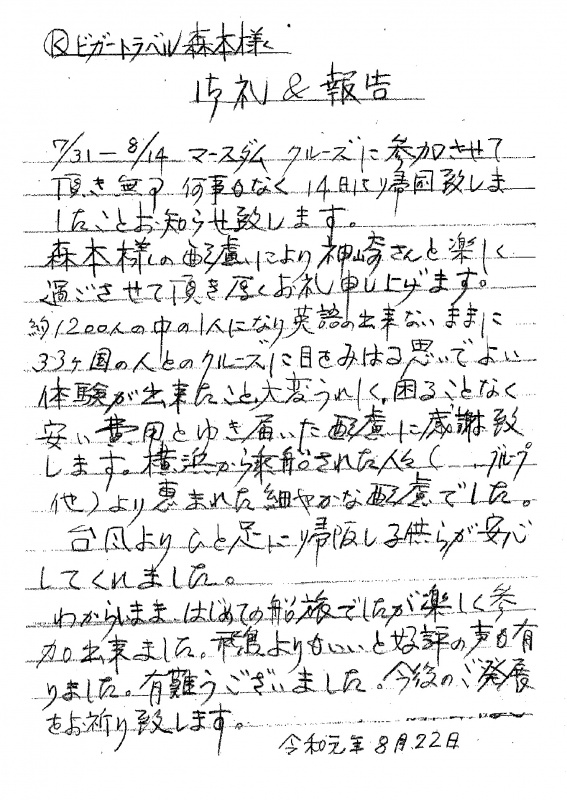 Ⓚビガートラベル 森本様へ
御礼 & 報告
7/31−8/14 マースダム クルーズに参加させて
頂き無事 何事もなく 14日に帰国致しま
したことお知らせ致します。
森本様の配慮により神崎さんと楽しく
過ごさせて頂き厚くお礼申し上げます。
約1200人の中の1人になり英語の出来ないままに
33ヶ国の人とのクルーズに目をみはる思いでよい
体験が出来たこと、大変うれしく、困ることなく
安い費用とゆき届いた配慮に感謝致
します。横浜から乗船された人々(、、グループ
他)より恵まれた細やかな配慮でした。
台風よりひと足に帰阪し子供らが安心
してくれました。
わからいまま、はじめての船旅でしたが楽しく参
加出来ました。よりもいいと好評の声も有
りました。有難うございました。今後のご発展
をお祈り致します。
令和元年 8月22日